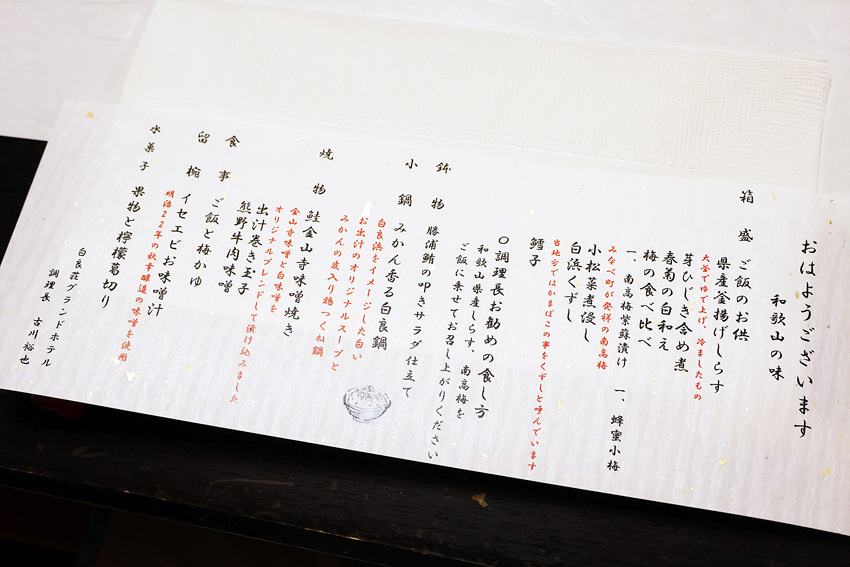 おはようございます
和歌山の味
箱盛 ご飯のお供
県産釜揚げしらす
大釜でゆで上げ、冷ましたもの
芽ひじき含め煮
春菊の白和え
梅の食べ比べ
一、南高梅紫蘇漬け 一、蜂蜜小梅
みなべ町が発祥の南高梅
小松菜煮浸し
白浜くずし
当地方ではかまぼこの事をくずしと呼んでいます
鱈子
〇調理長お勧めの食し方
和歌山県産しらす、南高梅を
ご飯に乗せてお召し上がりください
鉢物 勝浦鮪の叩きサラダ仕立て
小鍋 みかん香る白良鍋
白良浜をイメージした白い
お出汁のオリジナルスープと
みかんの皮入り鶏つくね鍋
焼物 鮭金山寺味噌焼き
金山寺味噌と白味噌を
オリジナルブレンドして漬け込みました
出汁巻き玉子
熊野牛肉味噌
食事 ご飯と梅かゆ
留椀 イセエビお味噌汁
明治22年の秋幸醸造の味噌を使用
水菓子 果物と檸檬葛切り
白良荘グランドホテル
調理長 古川裕也